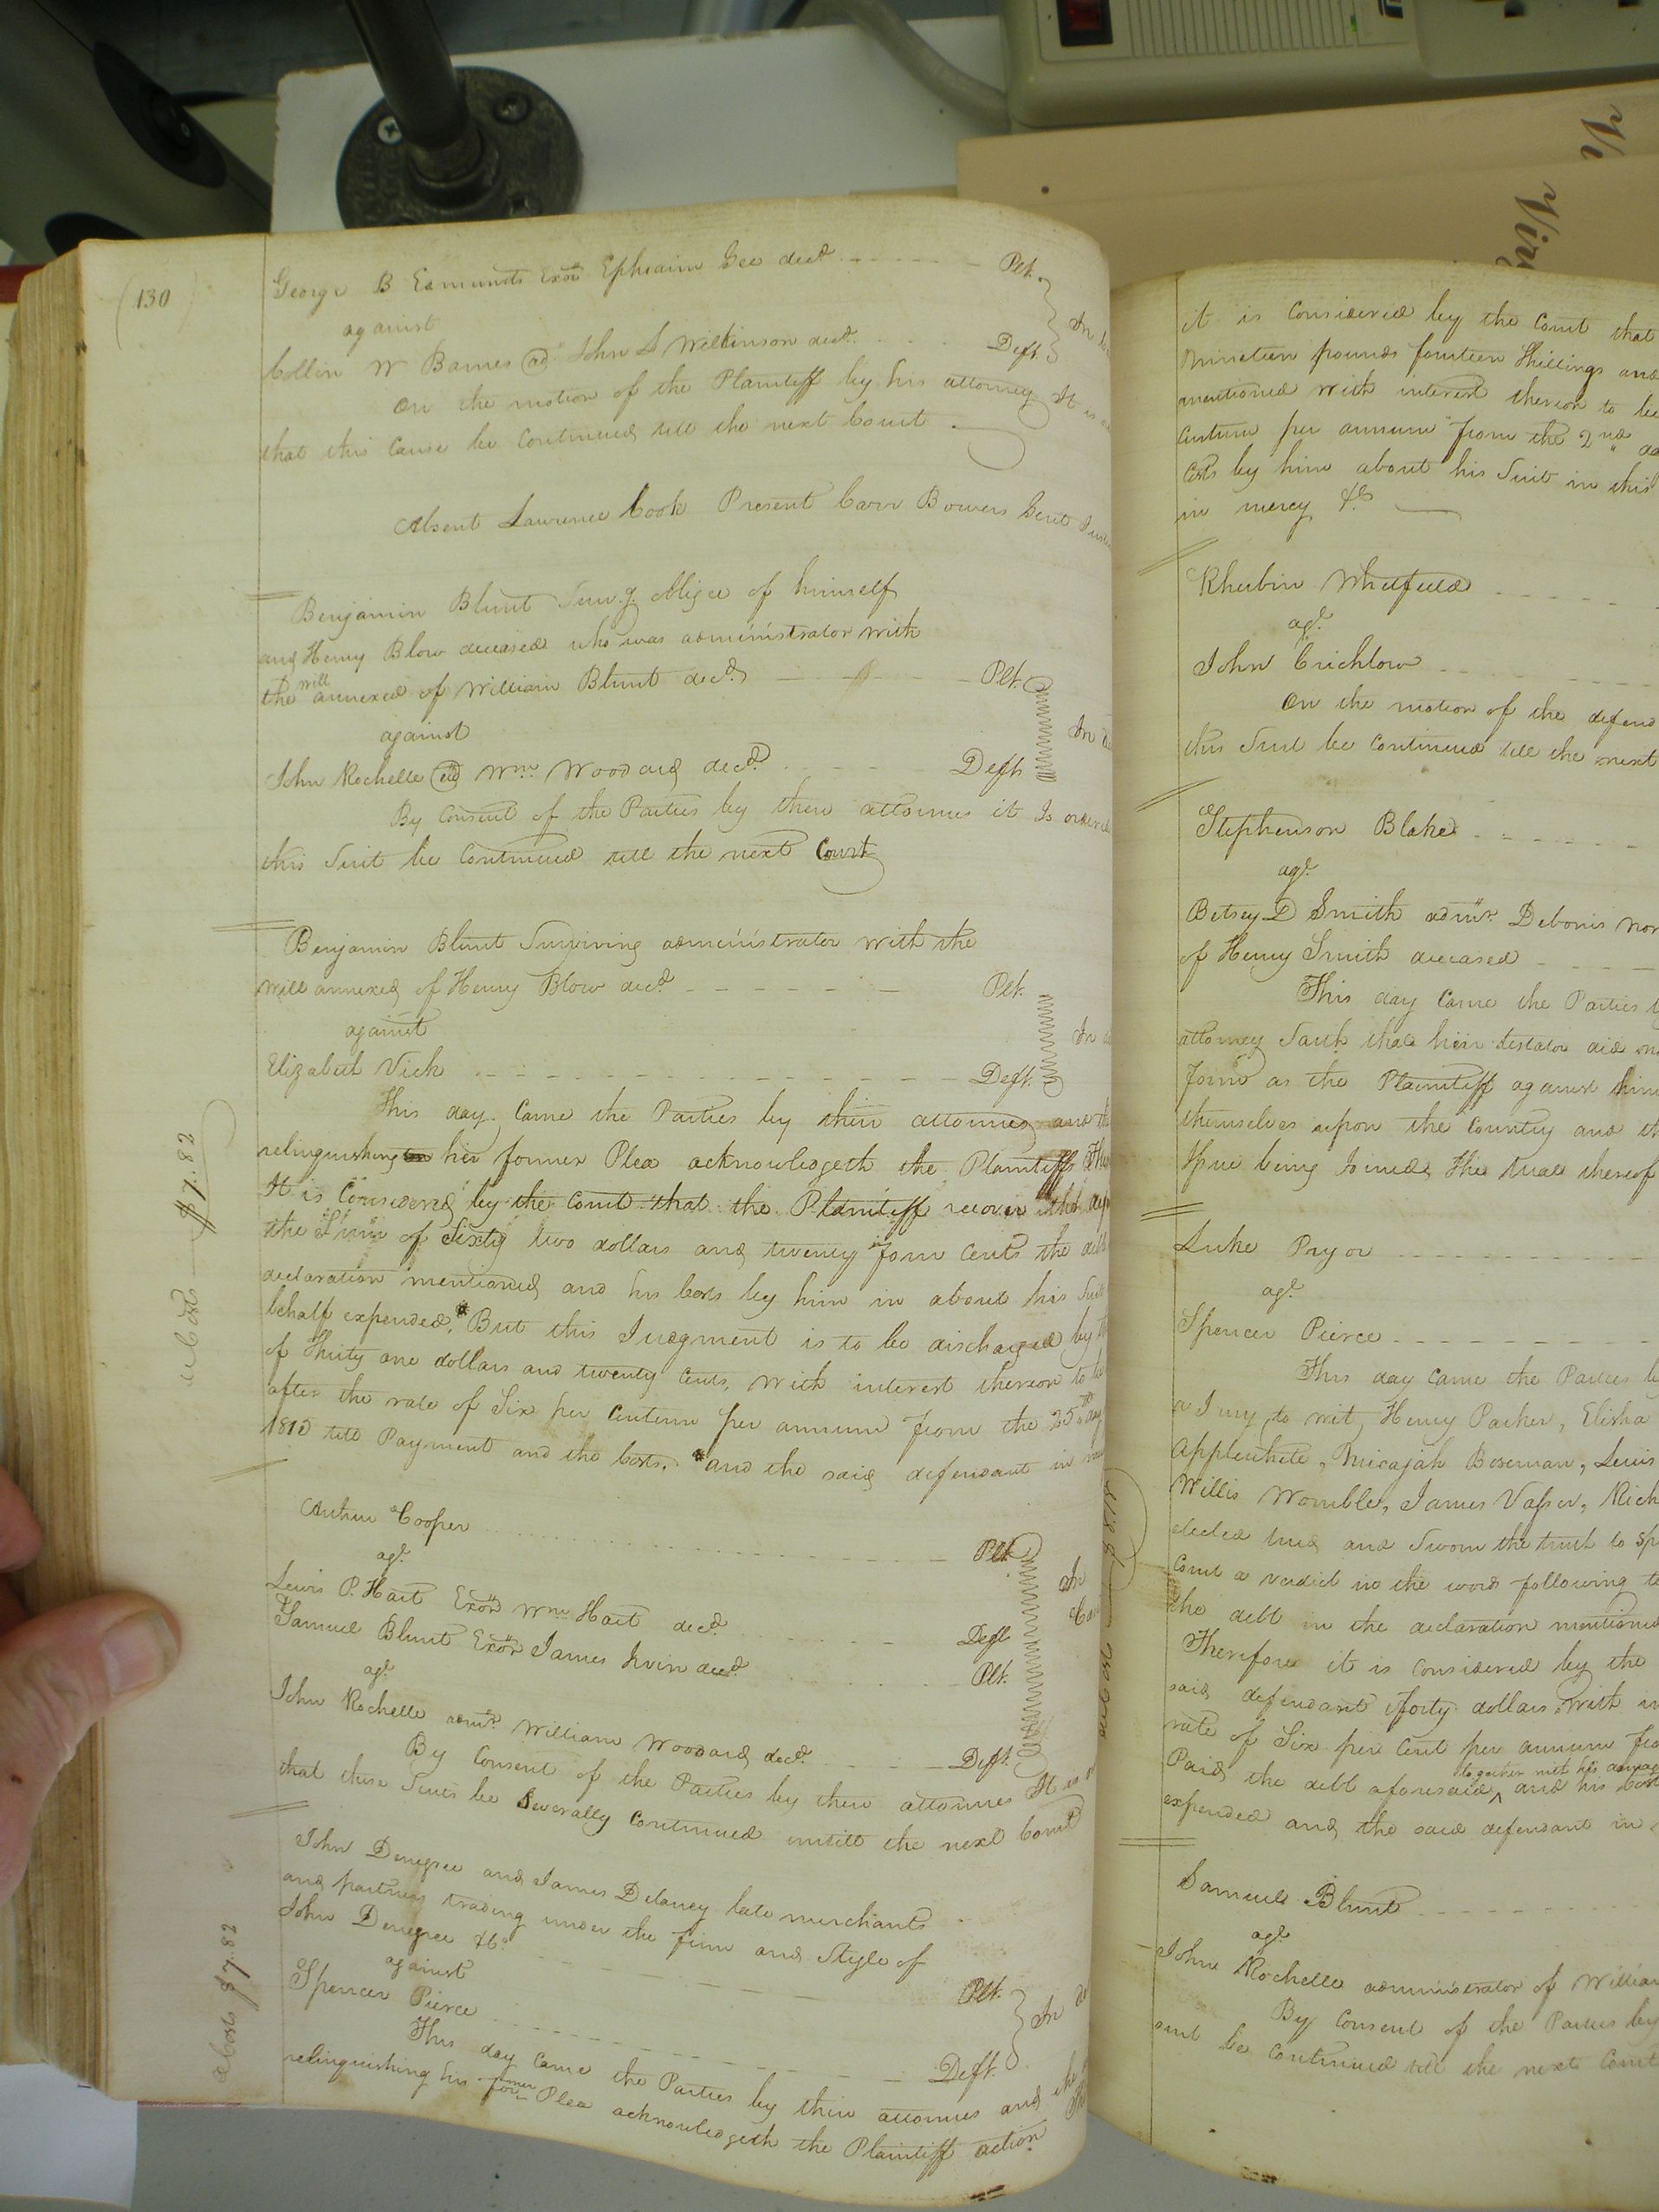 (130)
George B Edmunds Exor Ephraim Gee decd Plt.
against
Collin W Barnes ad John S Wilkinson decd Deft.
On the motion of the Plaintiff by his attorney It is
that this Cause be Continued till the next Court
Absent Lawrence Cook Present Carr Bowers Gent
Benjamin Blunt Surv.g Obligee of himself
and Henry Blow deceased who was administrator with
the will annexed of William Blunt decd. Plt.
against
In
John Rochelle ad Wm Woodard decd. Deft
By Consent of the Parties by their attornies it Is ordered
this Suit be Continued till the next Court
Benjamin Blunt Surviving administrator with the
will annexed of Henry Blow decd. Plt.
against
In
Elizabeth Vick Deft.
This day Came the Parties by their attornies and the
relinquishing her former Plea acknowledgeth the Plaintiffs
It is Considered by the Court that the Plaintiff recover
the Sum of Sixty two dollars and twenty four Cents the debt
declaration mentioned and his Costs by him in about his Suit
behalf expended.* But this Judgment is to be discharged by the
of Thirty one dollars and twenty Cents, with interest thereon to be
after the rate of Six per Centum per annum from the 25th day
1815 till Payment and the Costs. *and the said defendant in
Costs $7.82
Arthur Cooper Plt
agt.
In
Lewis P. Hart Exor Wm Hart decd. Deft
Samuel Blunt Exor James Irvin decd. Plt.
agt.
John Rochelle admr. William Woodard decd. Deft.
By Consent of the Parties by their attornies It is
that these Suits be Severally Continued untill the next Court
John Denegree and James Delaney late merchants
and partners trading under the firm and Style of
John Denegree & Co. Plt.
against
In
Spencer Pierce Deft.
This day Came the Parties by their attornies and the
relinquishing his former Plea acknowledgeth the Plaintiff action
Costs $7.82
it is Considered by the Court that
nineteen pounds fourteen Shillings and
mentioned with interest thereon to be
Centum per annum from the 2nd da
Costs by him about his Suit in this
in mercy &c
Rhubin Whitfield
agt.
John Crichlow
On the motion of the defend
this Suit be Continued till the next
Stephenson Blake
agt.
Betsey D Smith admr. Debonis non
of Henry Smith deceased
This day Came the Parties
attorney Saith that him testator did no
form as the Plaintiff against him
themselves upon the Country and th
Issue being Joined, The trial thereof
Luke Pryor
agt.
Spencer Pierce
This day came the Parties by
a Jury to wit, Henry Parker, Elisha
Applewhite, Micajah Boseman, Lewis
Willis Womble, James Vasser, Rich
elected tried and Sworn the truth to sp
Court a verdict in the words following to
the debt in the declaration mentioned
Therefore it is Considered by the
said defendant forty dollars, with in
rate of Six per Cent per annum fro
together with his damages
Paid, the debt aforesaid, and his Costs
expended and the said defendant in
Samuel Blunt
agt.
John Rochelle administrator of William
By Consent of the Parties by
suit be Continued till the next Court